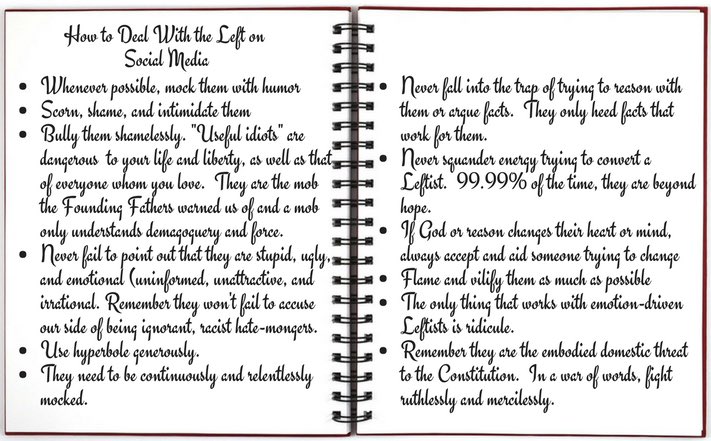 How to Deal With the Left on
Social Media
• Whenever possible, mock them with humor
• Scorn, shame, and intimidate them
• Bully them shamelessly. "Useful idiots" are
dangerous to your life and liberty, as well as that
of everyone whom you love. They are the mob
the Founding Fathers warned us of and a mob
only understands demagoguery and force.
• Never fail to point out that they are stupid, ugly,
and emotional (uninformed, unattractive, and
irrational. Remember they won't fail to accuse
our side of being ignorant, racist hate-mongers.
• Use hyperbole generously.
• They need to be continuously and relentlessly
mocked.
• Never fall into the trap of trying to reason with
them or argue facts. They only heed facts that
work for them.
• Never squander energy trying to convert a
Leftist. 99.99% of the time, they are beyond
hope.
• If God or reason changes their heart or mind,
always accept and aid someone trying to change
• Flame and vilify them as much as possible
• The only thing that works with emotion-driven
Leftists is ridicule.
• Remember they are the embodied domestic threat
to the Constitution. In a war of words, fight
ruthlessly and mercilessly.